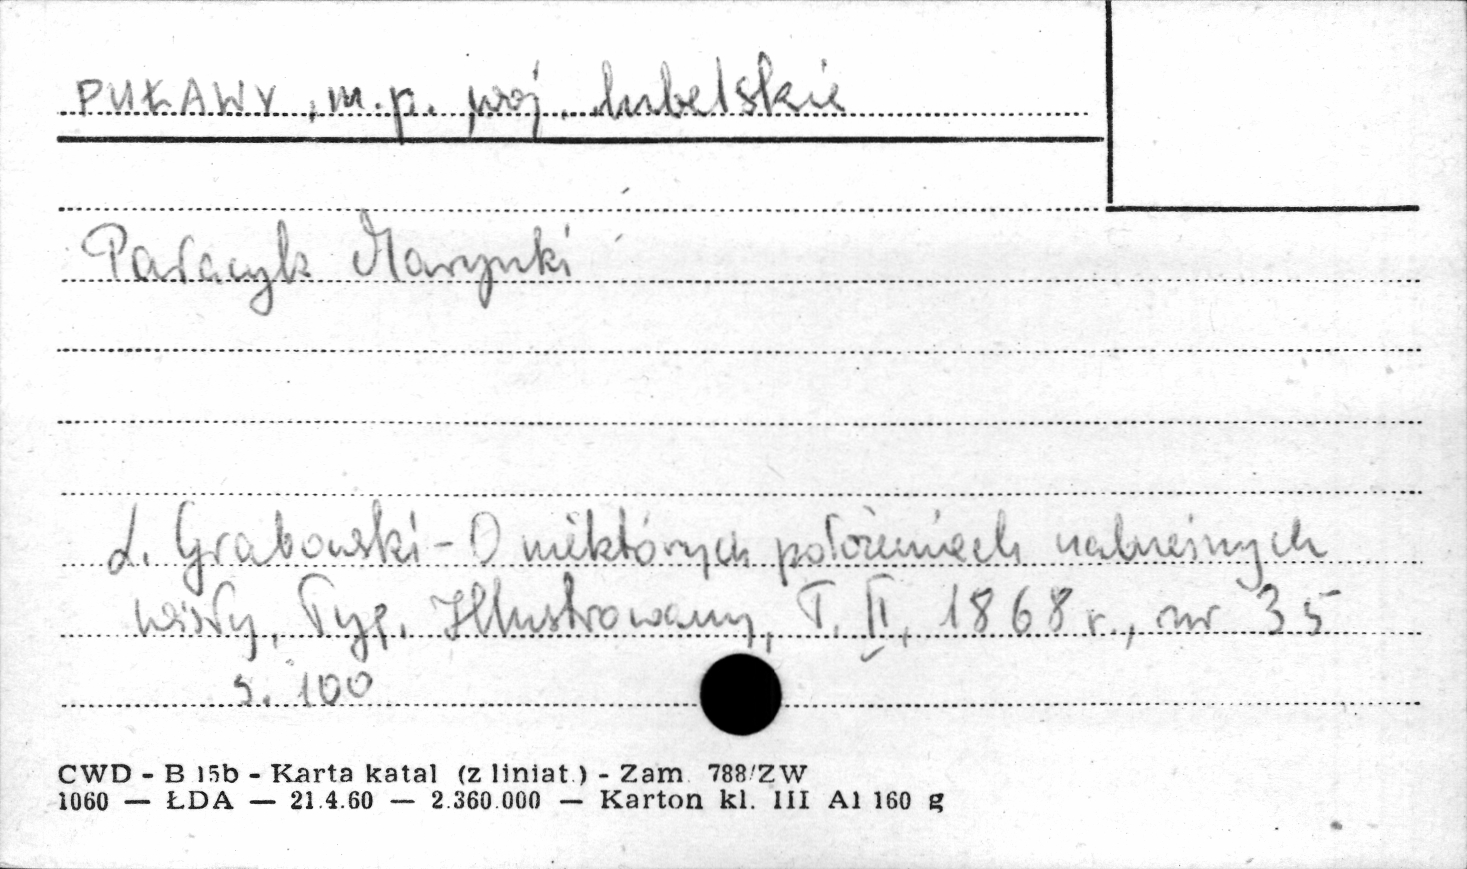 PUŁAWY, m.p. woj. lubelskie
Pałacyk Marynki
L. Grabowski - O niektórych położeniach nabrzeżnych
Wisły, Tyg. Illustrowany, T. II, 1868 r., nr 35
s. 100
CWD - B 15b - Karta katal (z liniat.) - Zam. 788/ZW
1060 — ŁDA — 21.4.60 — 2.360.000 — Karton kl. III A1 160 g